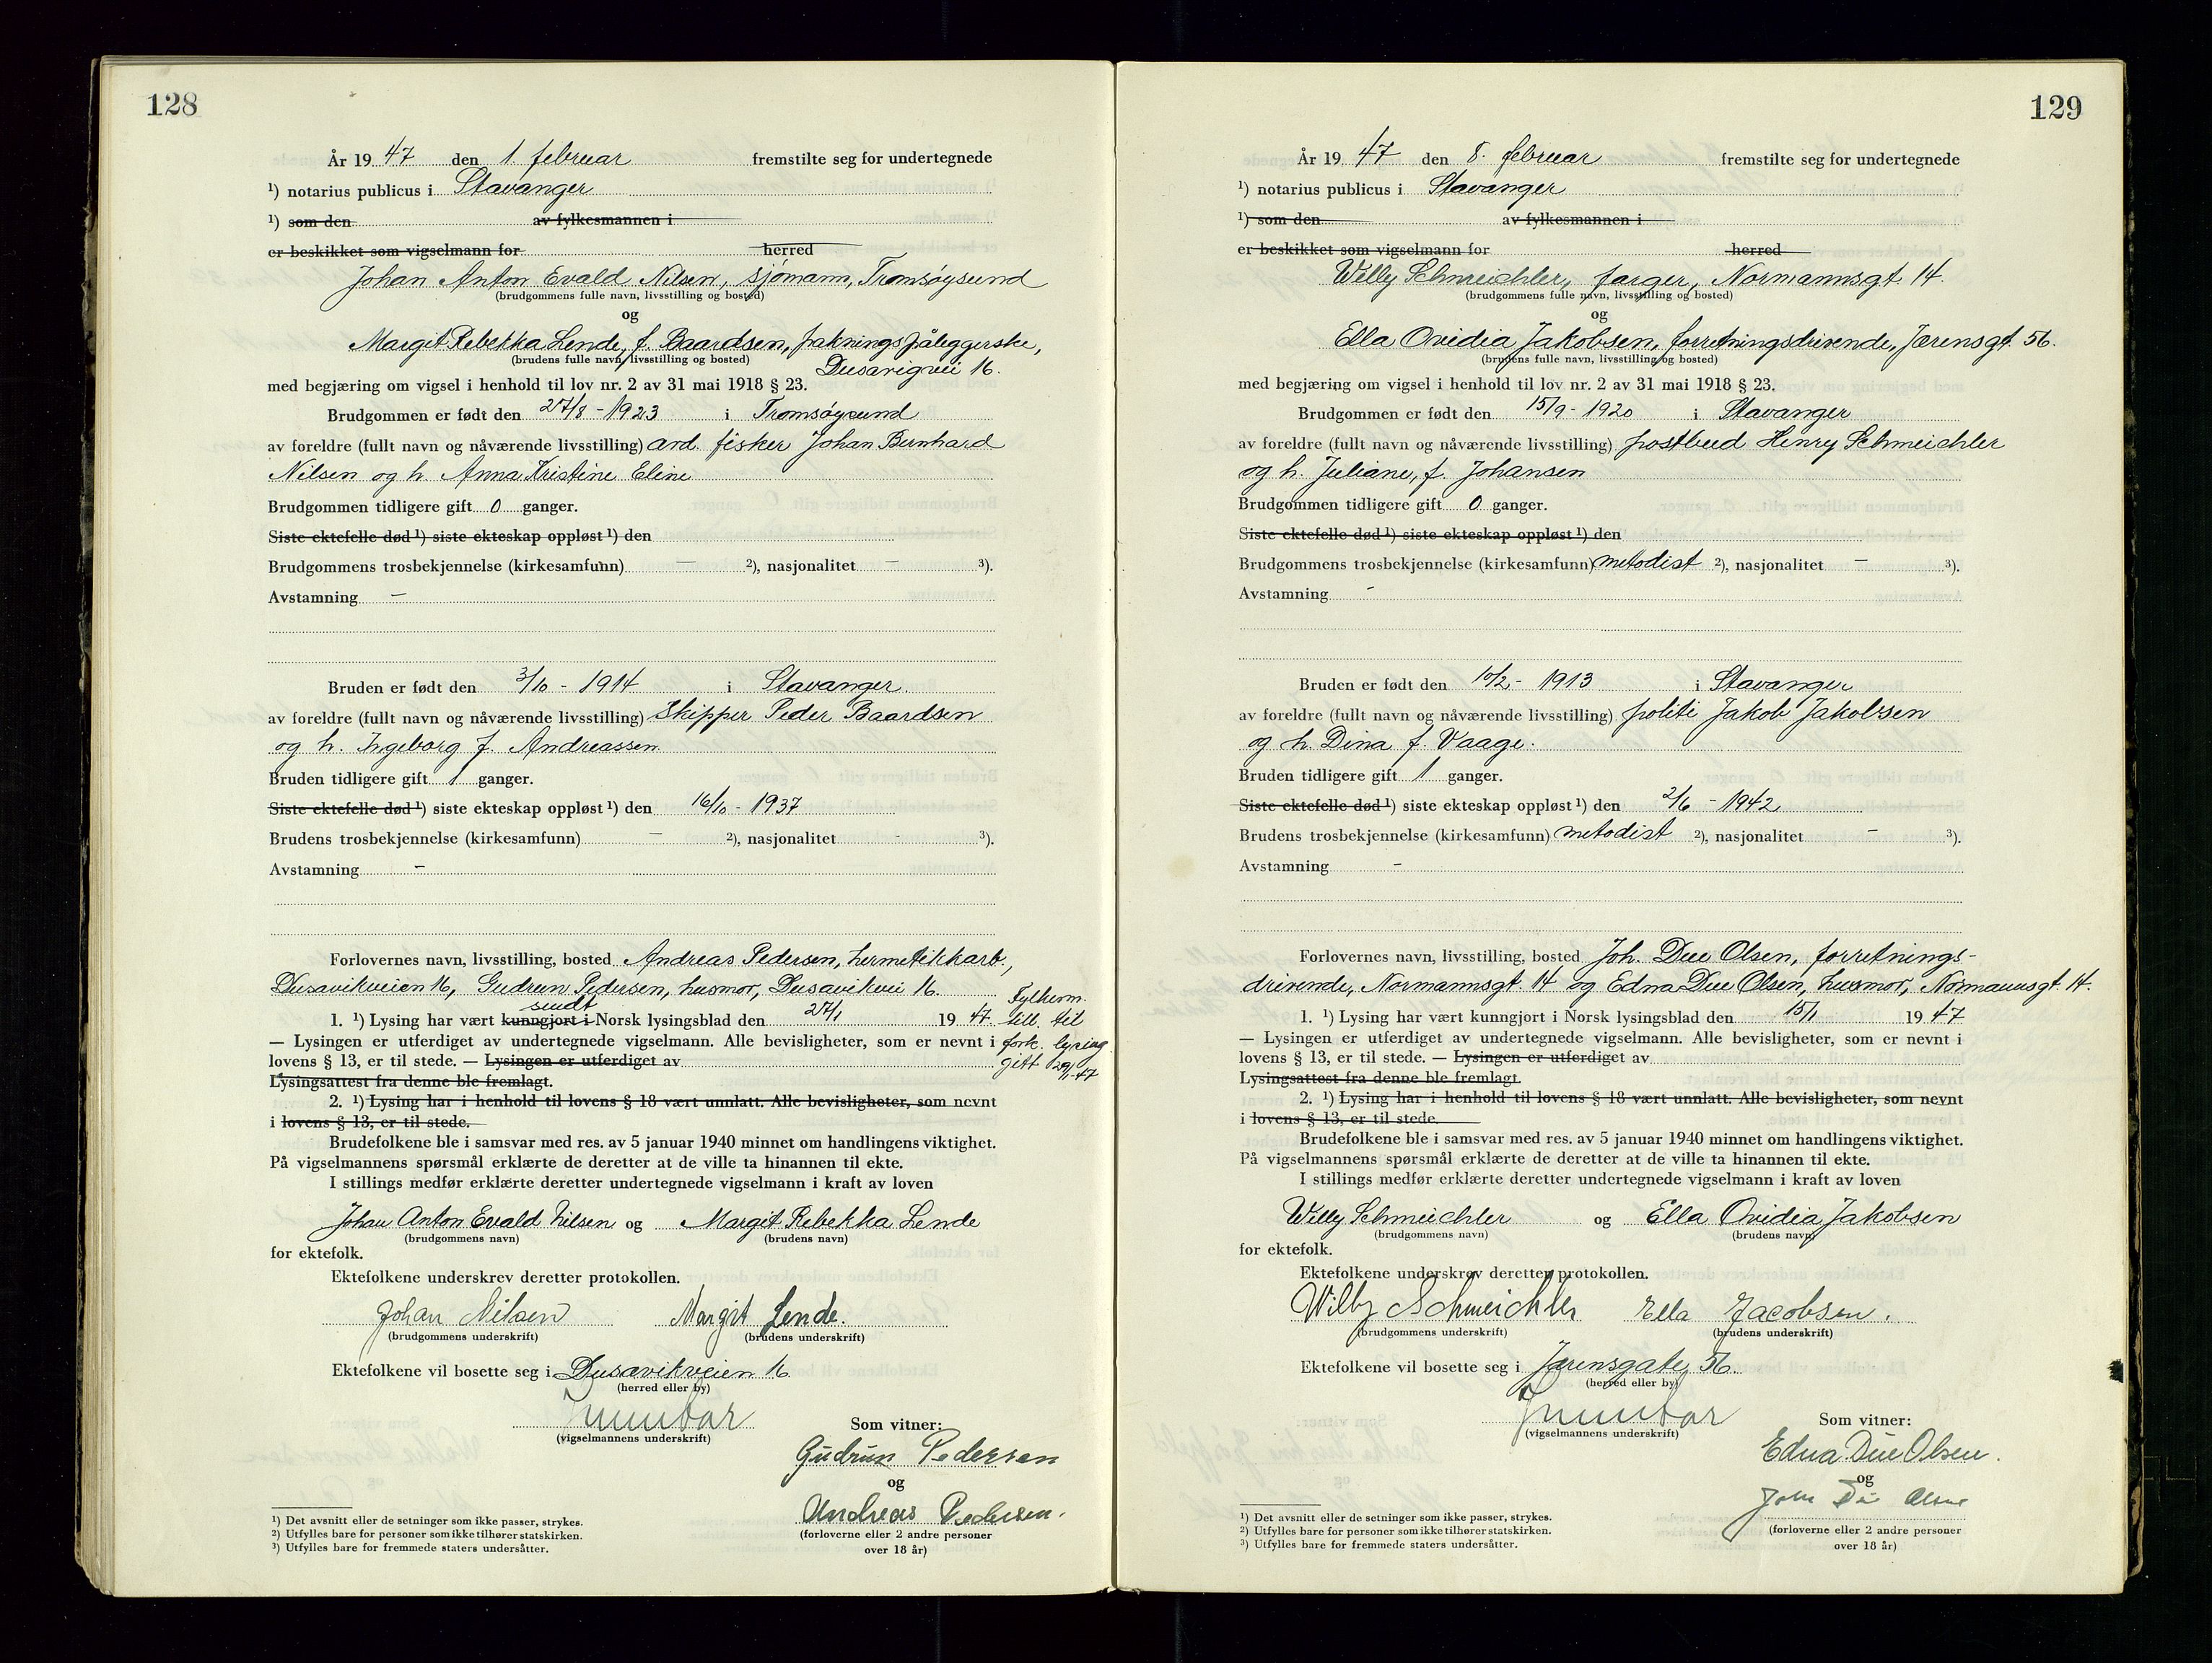 128
År 19 47 den 1. februar fremstilte seg for undertegnede
¹) notarius publicus i Stavanger
¹) som den av fylkesmannen i
er beskikket som vigselmann for herred
Johan Anton Evald Nilsen, sjømann, Tromsøysund
(brudgommens fulle navn, livsstilling og bosted)
og
Margit Rebekka Lende, f. Baardsen, pakningspåleggerske,
(brudens fulle navn, livsstilling og bosted)
Dusavigvei 16.
med begjæring om vigsel i henhold til lov nr. 2 av 31 mai 1918 § 23.
Brudgommen er født den 27/8 - 1923 i Tromsøysund
av foreldre (fullt navn og nåværende livsstilling) avd. fisker Johan Bernhard
Nilsen og h. Anna Kristine Eline
Brudgommen tidligere gift 0 ganger.
Siste ektefelle død ¹) siste ekteskap oppløst ¹) den
Brudgommens trosbekjennelse (kirkesamfunn) — ²), nasjonalitet — ³).
Avstamning —
Bruden er født den 3/10 - 1914 i Stavanger.
av foreldre (fullt navn og nåværende livsstilling) Skipper Peder Baardsen
og h. Ingeborg f. Andreassen
Bruden tidligere gift 1 ganger.
Siste ektefelle død ¹) siste ekteskap oppløst ¹) den 16/10 - 1937
Brudens trosbekjennelse (kirkesamfunn) — ²), nasjonalitet - ³).
Avstamning —
Forlovernes navn, livsstilling, bosted Andreas Pedersen, hermetikkarb.,
Dusavikveien 16, Gudrun Pedersen, husmor, Dusavikvei 16.
sendt
1. ¹) Lysing har vært kunngjort i Norsk lysingsblad den 27/1 19 47.
Fylkesm. till. til fork. lysing gitt 29/1-47
— Lysingen er utferdiget av undertegnede vigselmann. Alle bevisligheter, som er nevnt i
lovens § 13, er til stede. — Lysingen er utferdiget av
Lysingsattest fra denne ble fremlagt.
2. ¹) Lysing har i henhold til lovens § 18 vært unnlatt. Alle bevisligheter, som nevnt
i lovens § 13, er til stede.
Brudefolkene ble i samsvar med res. av 5 januar 1940 minnet om handlingens viktighet.
På vigselmannens spørsmål erklærte de deretter at de ville ta hinannen til ekte.
I stillings medfør erklærte deretter undertegnede vigselmann i kraft av loven
Johan Anton Evald Nilsen og Margit Rebekka Lende
(brudgommens navn) (brudens navn)
for ektefolk.
Ektefolkene underskrev deretter protokollen.
Johan Nilsen Margit Lende.
(brudgommens underskrift) (brudens underskrift)
Ektefolkene vil bosette seg i Dusavikveien 16
(herred eller by)
(vigselmannens underskrift)
Som vitner:
Gudrun Pedersen
og
Andreas Pedersen.
(forloverne eller 2 andre personer
over 18 år)
¹) Det avsnitt eller de setninger som ikke passer, strykes.
²) Utfylles bare for personer som ikke tilhører statskirken.
³) Utfylles bare for fremmede staters undersåtter.
129
År 19 47 den 8. februar fremstilte seg for undertegnede
¹) notarius publicus i Stavanger
¹) som den av fylkesmannen i
er beskikket som vigselmann for herred
Willy Schmeichler, farger, Normannsgt. 14.
(brudgommens fulle navn, livsstilling og bosted)
og
Ella Ovidia Jakobsen, forretningsdrivende, Jærensgt. 56.
(brudens fulle navn, livsstilling og bosted)
med begjæring om vigsel i henhold til lov nr. 2 av 31 mai 1918 § 23.
Brudgommen er født den 15/9 - 1920 i Stavanger
av foreldre (fullt navn og nåværende livsstilling) postbud Henry Schmeichler
og h. Juliane, f. Johansen
Brudgommen tidligere gift 0 ganger.
Siste ektefelle død ¹) siste ekteskap oppløst ¹) den
Brudgommens trosbekjennelse (kirkesamfunn) metodist ²), nasjonalitet — ³).
Avstamning -
Bruden er født den 10/2 - 1913 i Stavanger
av foreldre (fullt navn og nåværende livsstilling) politi Jakob Jakobsen
og h. Dina f. Vaage.
Bruden tidligere gift 1 ganger.
Siste ektefelle død ¹) siste ekteskap oppløst ¹) den 2/6 - 1942
Brudens trosbekjennelse (kirkesamfunn) metodist ²), nasjonalitet — ³).
Avstamning -
Forlovernes navn, livsstilling, bosted Joh. Due Olsen, forretnings-
drivende, Normannsgt. 14 og Edna Due Olsen, husmor, Normannsgt. 14.
1. ¹) Lysing har vært kunngjort i Norsk lysingsblad den 15/1 19 47
— Lysingen er utferdiget av undertegnede vigselmann. Alle bevisligheter, som er nevnt i
lovens § 13, er til stede. — Lysingen er utferdiget av
Lysingsattest fra denne ble fremlagt.
2. ¹) Lysing har i henhold til lovens § 18 vært unnlatt. Alle bevisligheter, som nevnt
i lovens § 13, er til stede.
Brudefolkene ble i samsvar med res. av 5 januar 1940 minnet om handlingens viktighet.
På vigselmannens spørsmål erklærte de deretter at de ville ta hinannen til ekte.
I stillings medfør erklærte deretter undertegnede vigselmann i kraft av loven
Willy Schmeichler og Ella Ovidia Jakobsen
(brudgommens navn) (brudens navn)
for ektefolk.
Ektefolkene underskrev deretter protokollen.
Willy Schmeichler Ella Jacobsen.
(brudgommens underskrift) (brudens underskrift)
Ektefolkene vil bosette seg i Jærensgate 56.
(herred eller by)
(vigselmannens underskrift)
Som vitner:
Edna Due Olsen.
og
(forloverne eller 2 andre personer
over 18 år)
¹) Det avsnitt eller de setninger som ikke passer, strykes.
²) Utfylles bare for personer som ikke tilhører statskirken.
³) Utfylles bare for fremmede staters undersåtter.